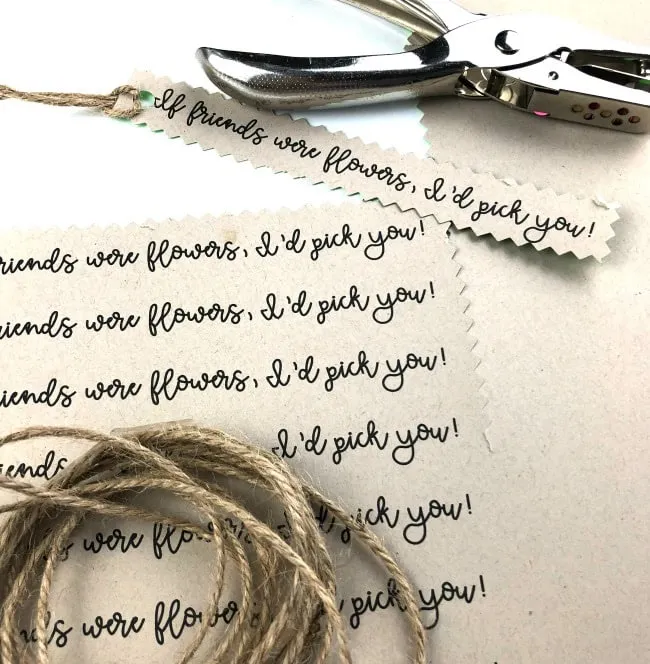 If friends were flowers, I'd pick you!
friends were flowers, I'd pick you!
friends were flowers, I'd pick you!
friends were flowers, I'd pick you!
friends I'd pick you!
were pick you!
were pick you!